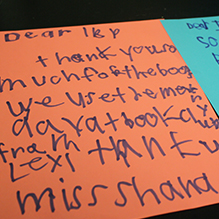 Dear Ikp
thank you so
much for the book
we use them on
day at book day
from
Lexi thank u
miss shand
So